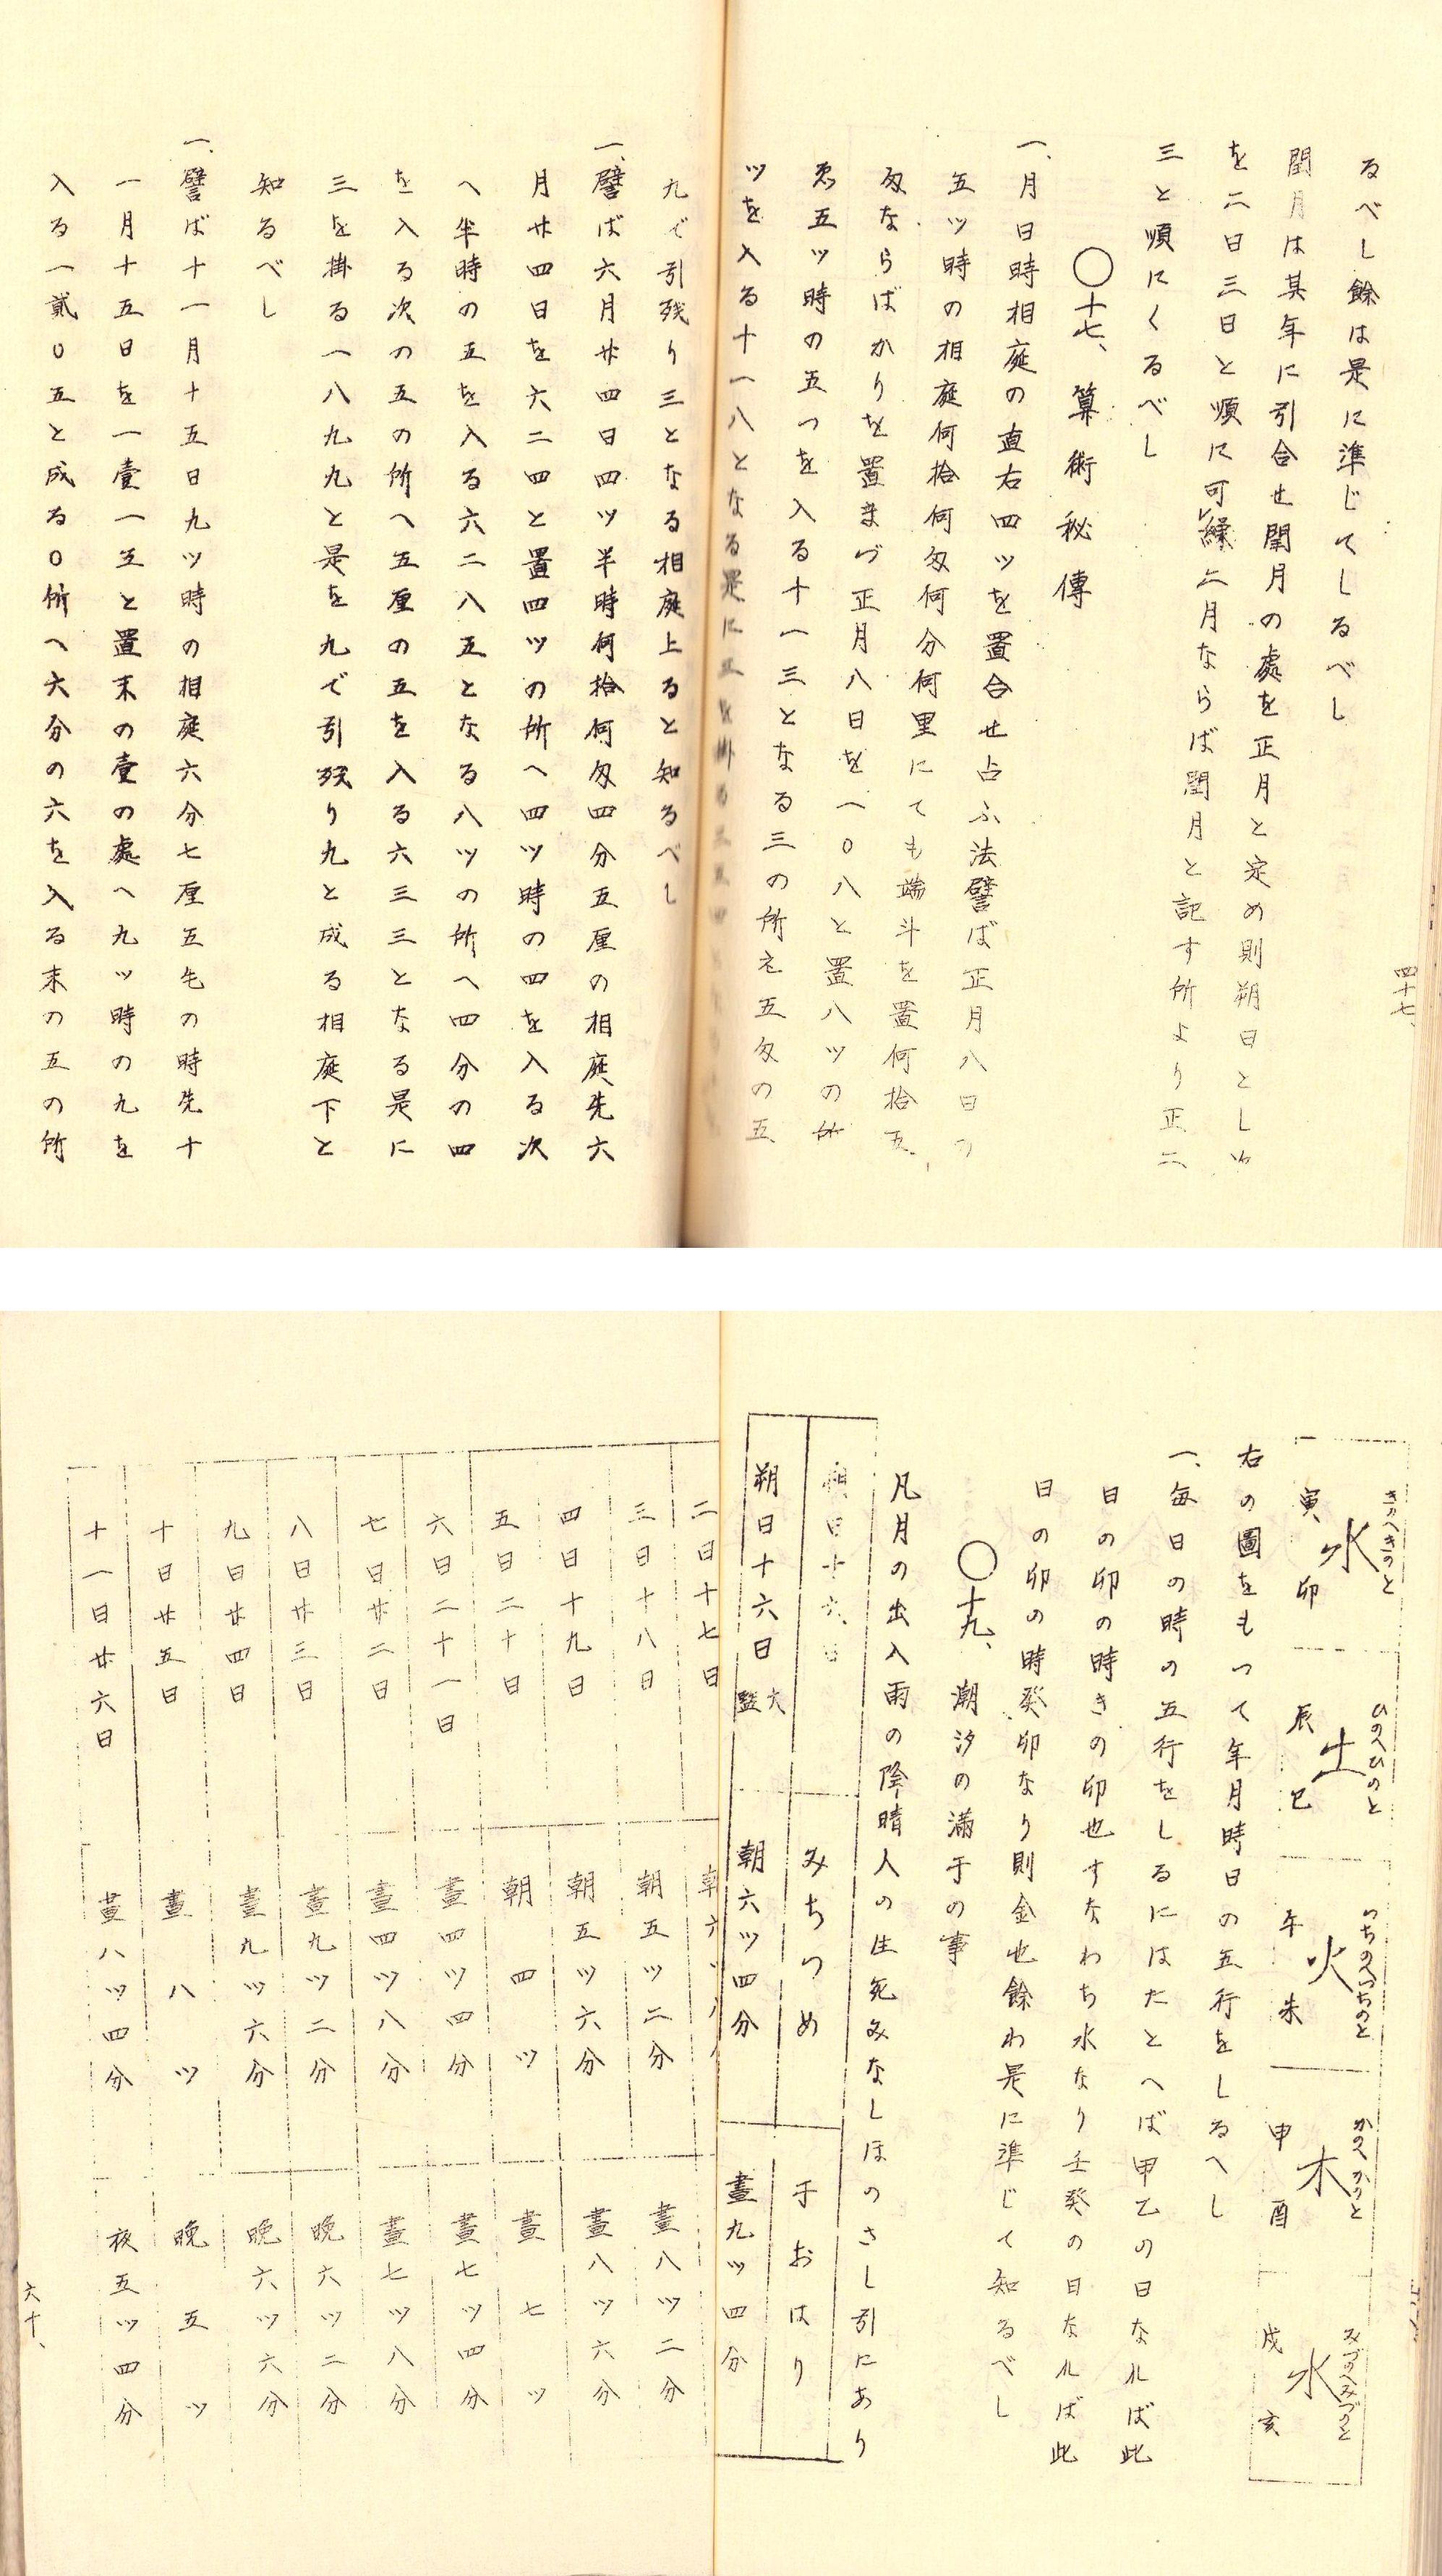 るべし餘は是に準じてしるべし
閏月は其年に引合せ閏月の處を正月と定め則朔日とし
を二日三日と順に可繰二月ならば閏月と記す所より正二
三と順にくるべし
〇十七、算術秘傳
一、月日時相庭の直右四ツを置合せ占ふ法譬ば正月八日つ
五ツ時の相庭何拾何匁何分何里にても端斗を置何拾五
匁ならばかりを置まづ正月八日を一〇八と置八ツの所
ゑ五ツ時の五つを入る十一三となる三の所え五匁の五
ツを入る十一八となる是に三を掛る
九で引残り三となる相庭上ると知るべし
一、譬ば六月廿四日四ツ半時何拾何匁四分五厘の相庭先六
月廿四日を六二四と置四ツの所へ四ツ時の四を入る次
へ半時の五を入る六二八五となる八ツの所へ四分の四
を入る次の五の所へ五厘の五を入る六三三となる是に
三を掛る一八九九と是を九で引残り九と成る相庭下と
知るべし
一、譬ば十一月十五日九ツ時の相庭六分七厘五毛の時先十
一月十五日を一壹一五と置末の壹の處へ九ツ時の九を
入る一貳〇五と成る〇所へ六分の六を入る末の五の所
四十七、
きのへきのと
水
寅 卯
ひのへひのと
土
辰 巳
つちのへつちのと
火
午 未
かのへかのと
木
申 酉
みづのへみづのと
水
戌 亥
右の圖をもつて年月時日の五行をしるへし
一、毎日の時の五行をしるにはたとへば甲乙の日なれば此
日の卯の時きの卯也すなわち水なり壬癸の日なれば此
日の卯の時癸卯なり則金也餘わ是に準じて知るべし
〇十九、潮汐の滿干の事
凡月の出入雨の降晴人の生死みなしほのさし引にあり
朔日十六日 みちつめ 干おはり
朔日十六日 大盬 朝六ツ四分 晝九ツ四分
二日十七日 朝六ツ八
三日十八日 朝五ツ二分 晝八ツ二分
四日十九日 朝五ツ六分 晝八ツ六分
五日二十日 朝四ツ 晝七ツ
六日二十一日 晝四ツ四分 晝七ツ四分
七日廿二日 晝四ツ八分 晝七ツ八分
八日廿三日 晝九ツ二分 晩六ツ二分
九日廿四日 晝九ツ六分 晩六ツ六分
十日廿五日 晝八ツ 晩五ツ
十一日廿六日 晝八ツ四分 夜五ツ四分
六十、